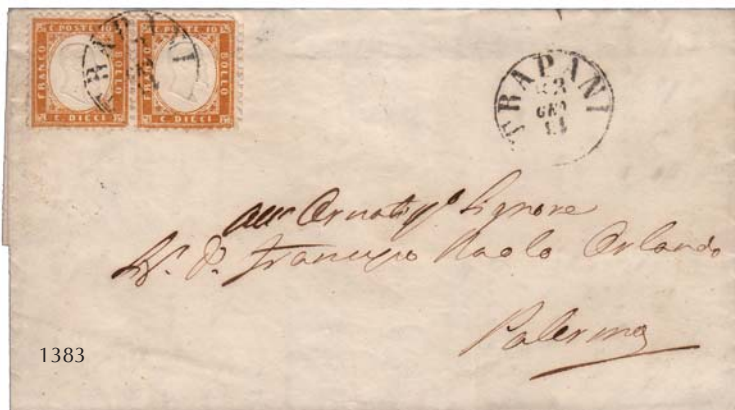 C. POSTE 10
FRANCO
BOLLO
C. DIECI
C. POSTE 10
FRANCO
BOLLO
C. DIECI
TRAPANI
GEN
Signore
Francesco Paolo Orlando
Palermo
1383